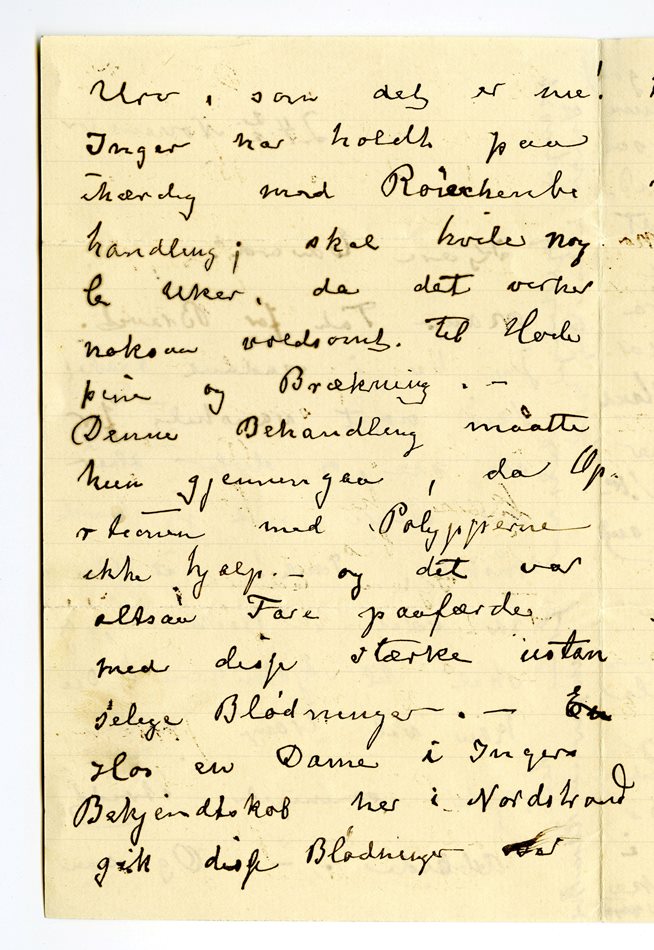 Uro, som det er nu!
Inger har holdt paa
ihærdig med Röickenbe
handling; skal hvile nog
le Uker, da det virker
noksaa voldsomt. til Hode
pine og Brækning. –
Denne Behandling maatte
hun gjennemgaa, da Op-
rtionen med Polypperne
ikke hjalp. – og det var
altsaa Fare paafærde
med disse stærke ustan
selige Blødninger. – En
Hos en Dame i Ingers
Bekjendtskab her i Nordstrand
gik disse Blødninger